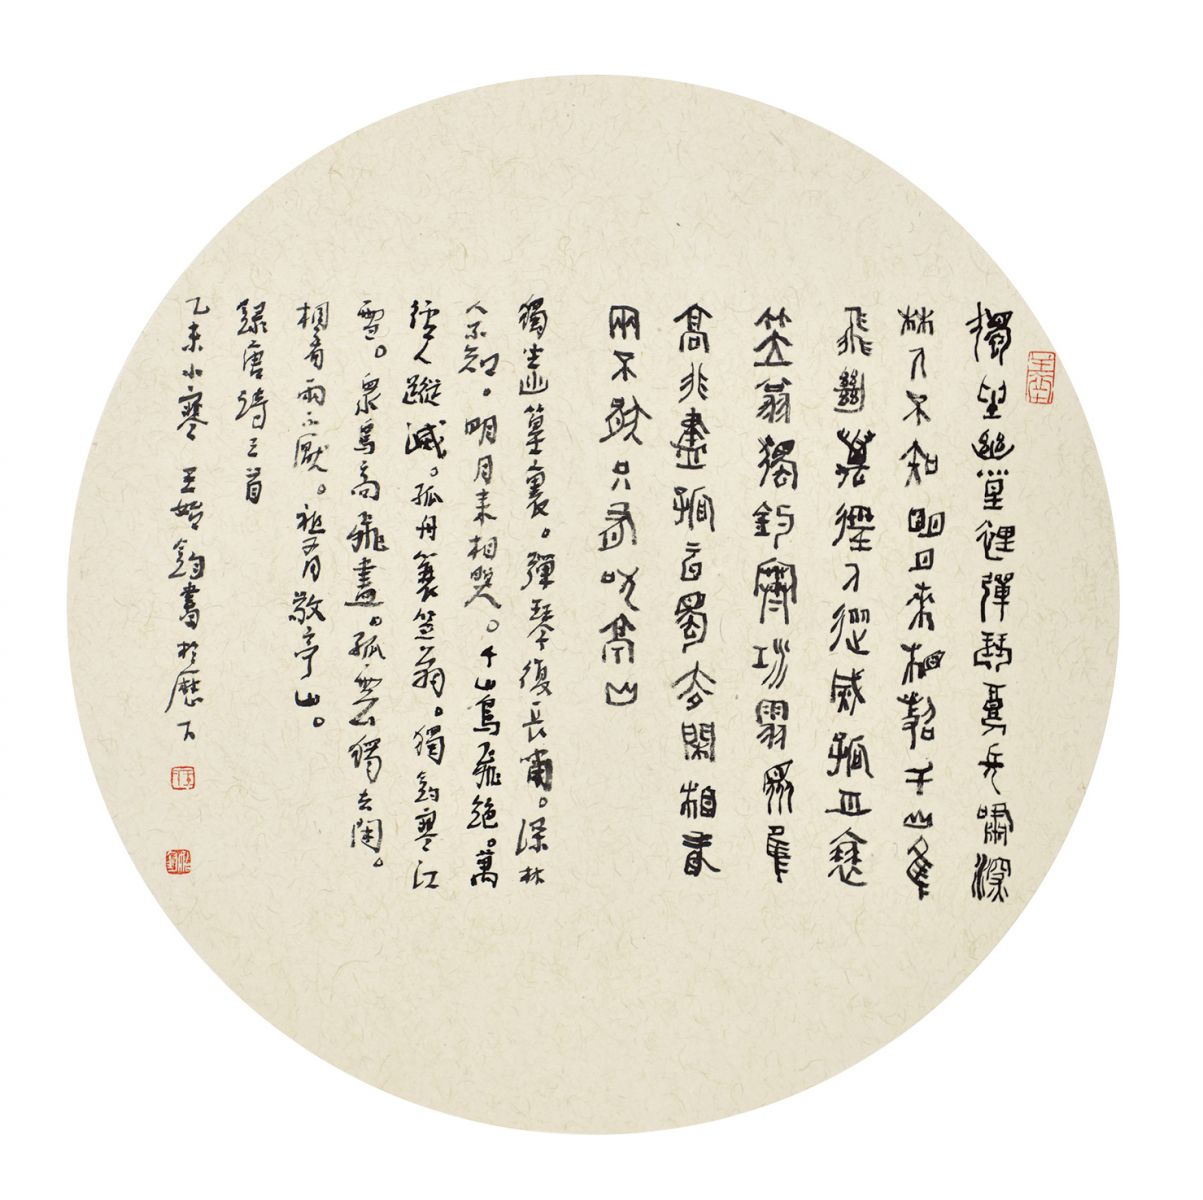 獨坐幽篁裡彈琴復長嘯深
林人不知明月來相照千山鳥
飛絕萬徑人蹤滅孤舟蓑
笠翁獨釣寒江雪眾鳥
高飛盡孤雲獨去閑相看
兩不厭只有敬亭山
獨坐幽篁裏。彈琴復長嘯。深林
人不知。明月來相照。千山鳥飛絕。萬
徑人蹤滅。孤舟蓑笠翁。獨釣寒江
雪。眾鳥高飛盡。孤雲獨去閑。
相看兩不厭。祗有敬亭山。
錄唐詩三首
乙未小寒 王鈞書於歷下